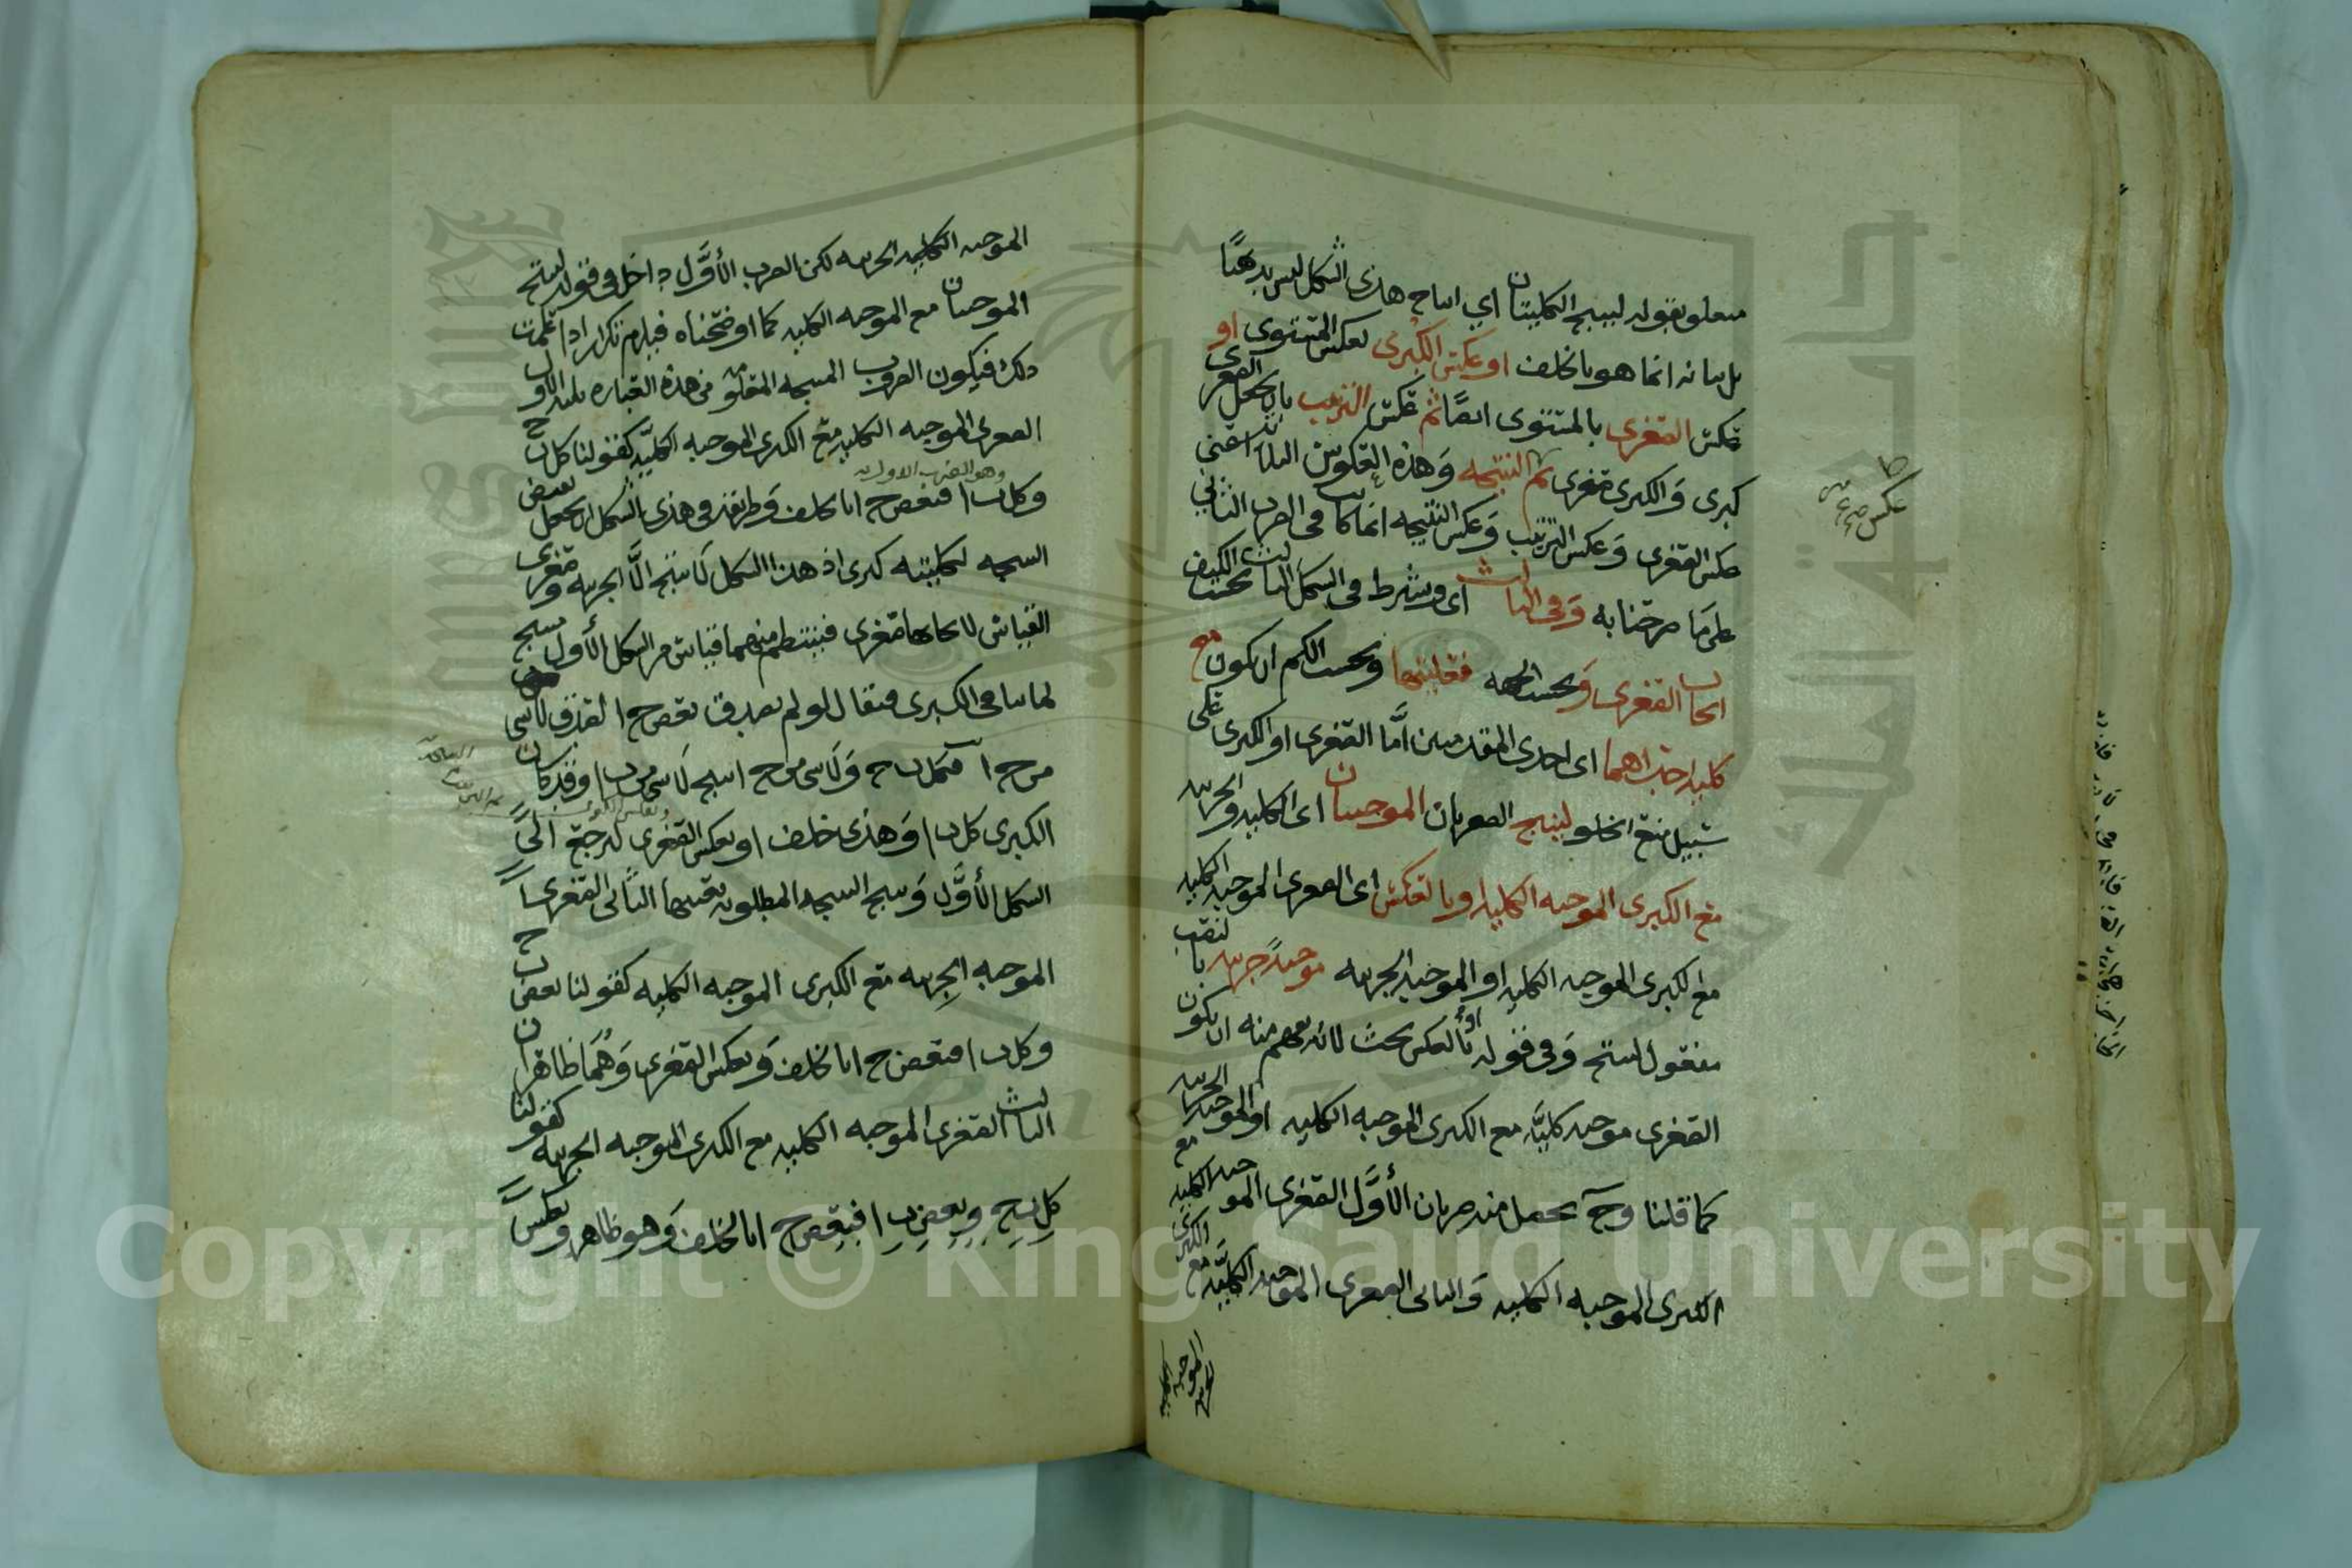 متعلق بقوله لينتج الكليتان اي انتاج هذى الشكل ليس بديهيا
بل بيانه انما هو بالخلف او عكس الكبرى بعكس المستوى او
عكس الصغرى بالمستوى ايضا ثم عكس الترتيب بان يجعل الصغرى
كبرى والكبرى صغرى ثم النتيجه وهذه العكوس الثلاثة اعني
عكس الصغرى وعكس الترتيب وعكس النتيجه انما كانت في الضرب الثاني
على ما صرحنا به وفي الثالث اى ويشرط في الشكل الثالث بحسب الكيف
ايجاب الصغرى وبحسب الجهه فعليتها وبحسب الكم ان يكون مع
كليه احدٮهما اى احدى المقدمتين اما الصغرى او الكبرى على
سبيل منع الخلو لينتج الصغريان الموجبتان اى الكليه والجزئيه
مع الكبرى الموجبه الكليه او بالعكس اى الصغرى الموجبه الكليه
مع الكبرى الموجبه الكليه او الموجبه الجزئيه موجبةً جزئيه بالنصب
مفعول لينتج وفي قوله او بالعكس بحث لانه يفهم منه ان يكون
الصغرى موجبه كليّه مع الكبرى الموجبه الكليه او الموجبه الجزئيه
كما قلنا وح يحصل منه ضربان الأوّل الصغرى الموجبه الكليه مع
الكبرى الموجبه الكليه والثانى الصغرى الموجبه الكليّه مع الكبرى
الموجبه الجزئيه
عكس
الموجبه الكليه الجزئيه لكن الضرب الأوّل داخل في قوله لينتج
الموجبتان مع الموجبه الكليه كما اوضحناه فيلزم تكرار اذا علمت
ذلك فيكون الضروب المنتجه المعلومه من هذه العباره ثلثه الاول
الصغرى الموجبه الكليه مع الكبرى الموجبه الكليّه كقولنا كل ب ح
وهو الضرب الاول
وكل ب ا فبعض ح ا بالخلف وطريقه في هذى الشكل ان يجعل نقيض
النتيجه لكليته كبرى اذ هذا الشكل لا ينتج الّا الجزئيه وصغرى
القياس لايجابها صغرى فينتظم منهما قياس من الشكل الأول ينتج
لما ينافى الكبرى فيقال لو لم يصدق بعض ح ا لصدق لا شى
من ح ا فكل ب ح ولا شى من ح ا ينتج لا شى من ب ا وقد كان
الكبرى كل ب ا وهذى خلف او بعكس الصغرى ليرجع الى
الشكل الأوّل وينتج النتيجه المطلوبه بعينها الثانى الصغرى
الموجبه الجزئيه مع الكبرى الموجبه الكليه كقولنا بعض ب ح
وكل ب ا فبعض ح ا بالخلف وبعكس الصغرى وهُما ظاهران
الثالث الصغرى الموجبه الكليه مع الكبرى الموجبه الجزئيه كقولنا
كل ب ح وبعض ب ا فبعض ح ا بالخلف وهو ظاهر وبعكس
Copyright © King Saud University